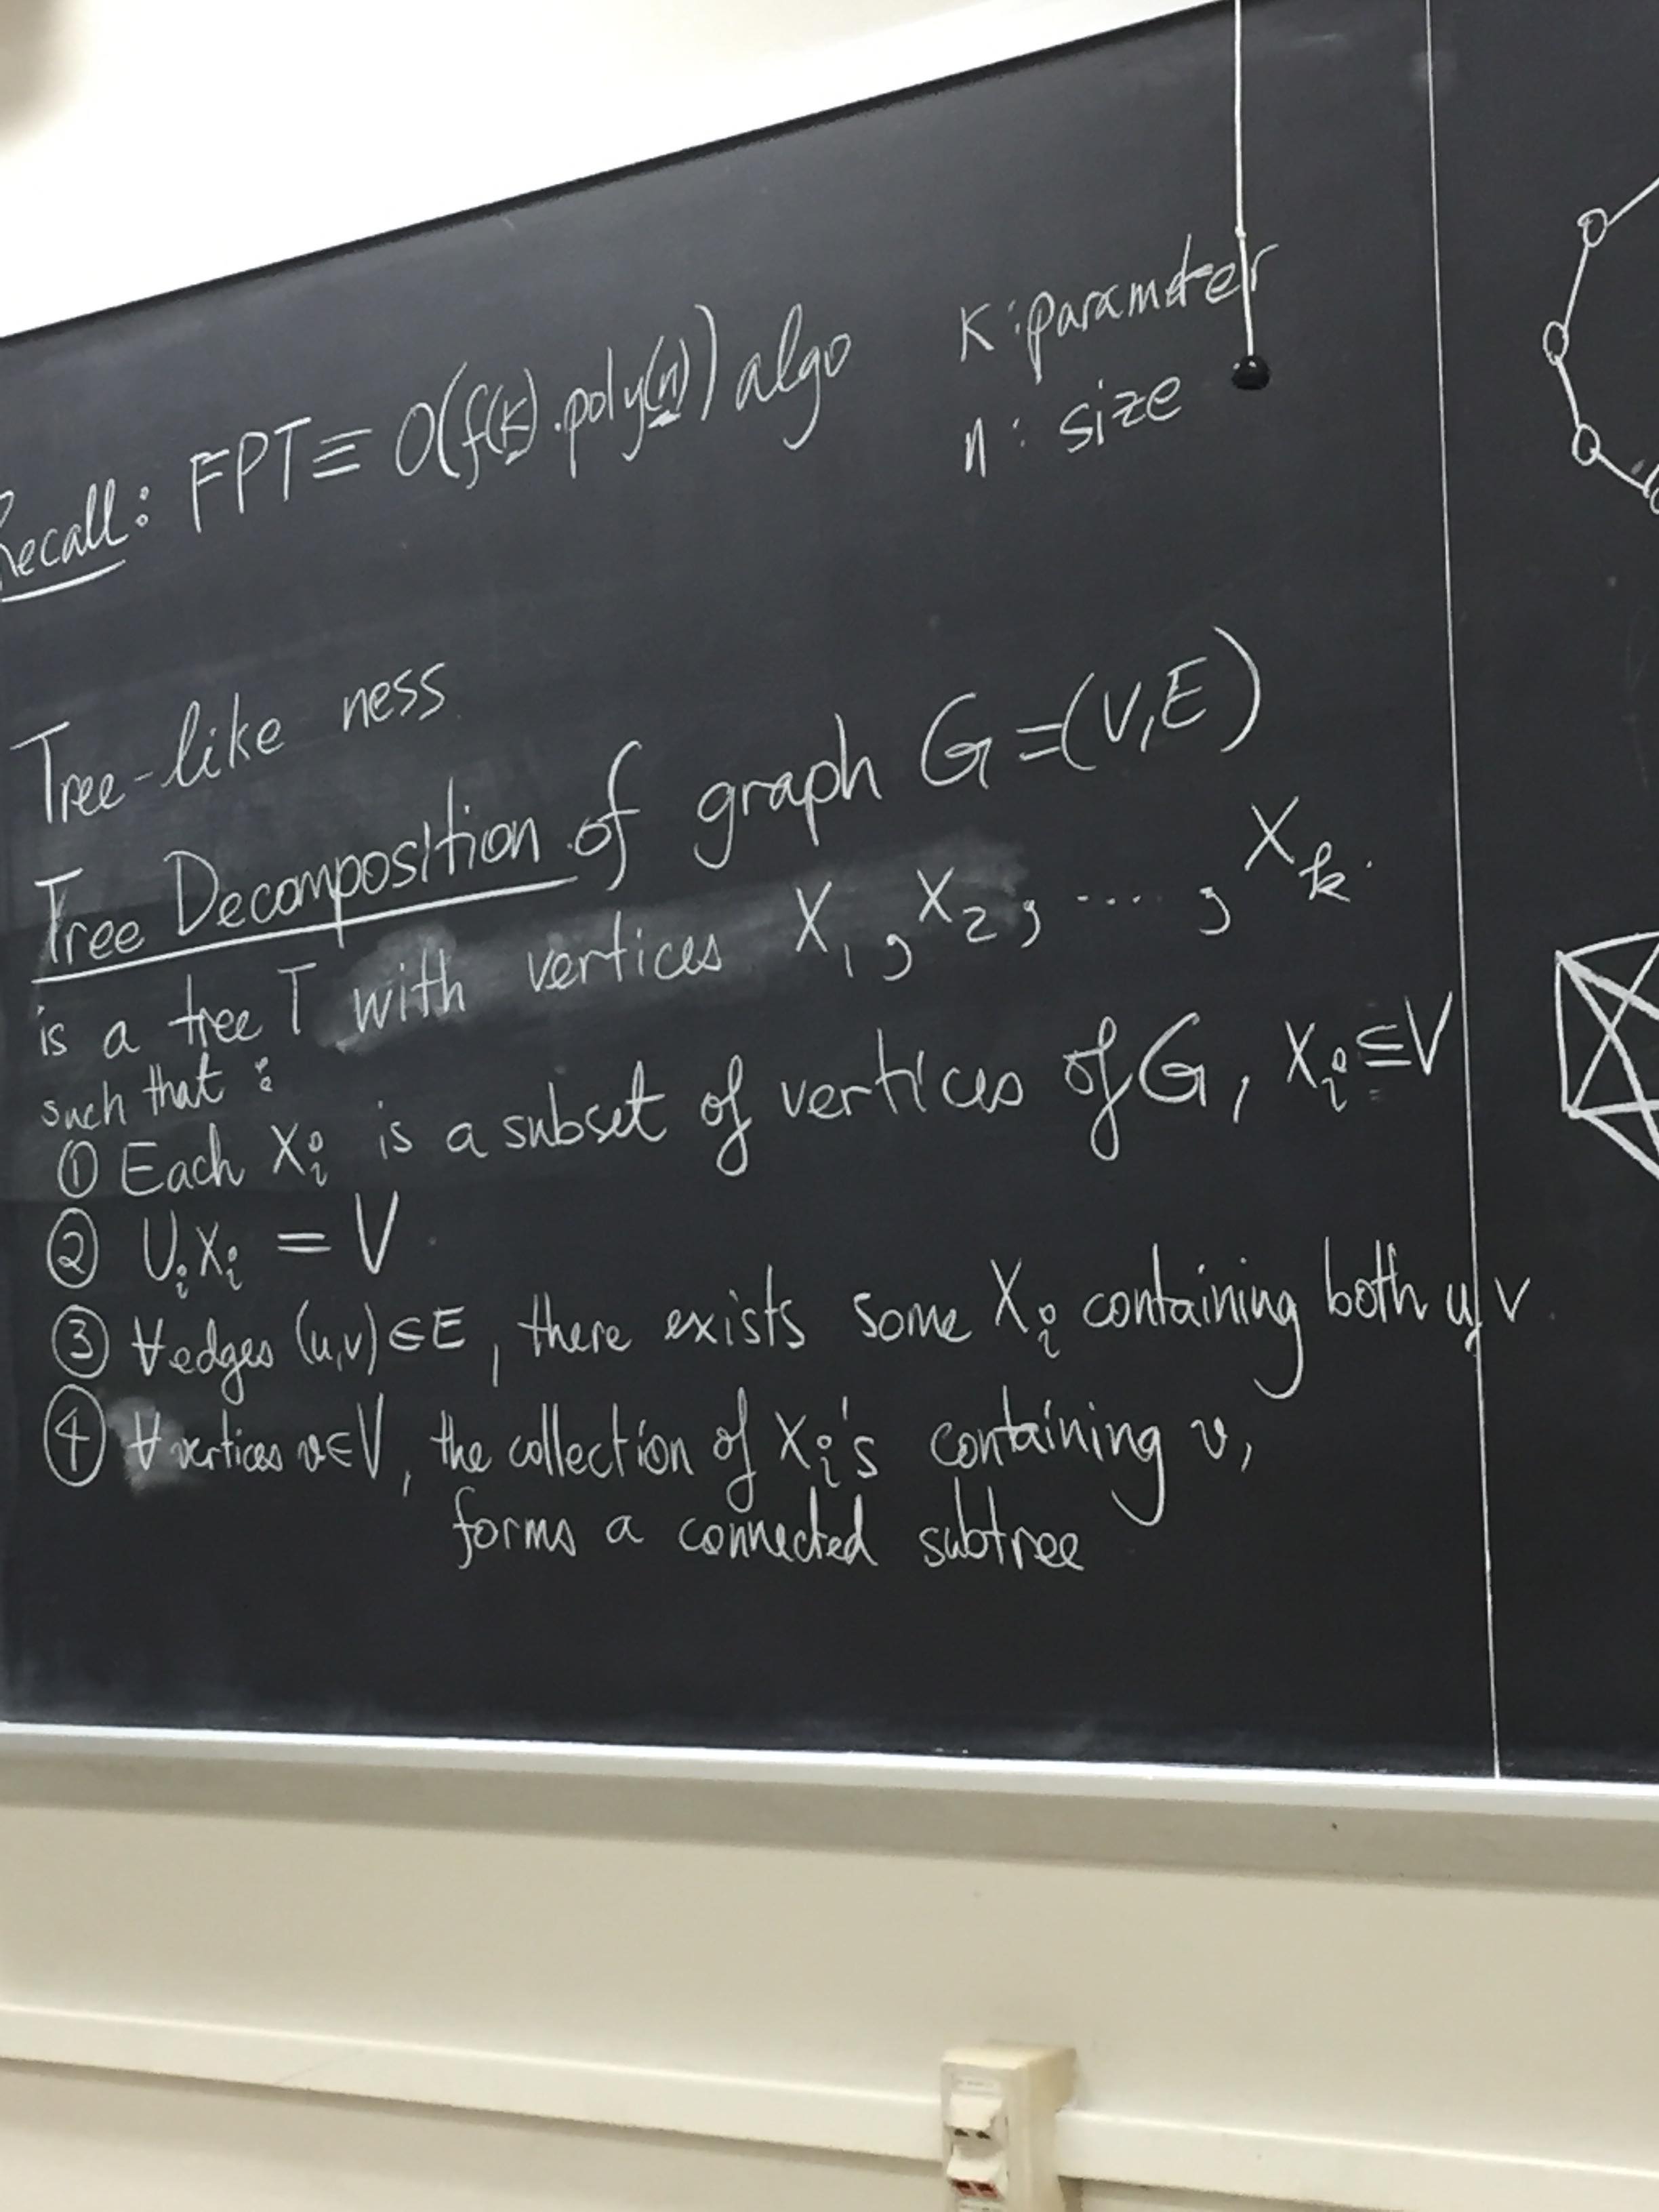 Recall: FPT ≡ O(f(k).poly(n)) algo
K: parameter
n: size
Tree-like ness
Tree Decomposition of graph G=(V,E)
is a tree T with vertices X₁, X₂, ...., Xₖ.
such that:
① Each Xᵢ is a subset of vertices of G, Xᵢ⊆V
② ∪ᵢXᵢ = V
③ ∀ edges (u,v)∈E, there exists some Xᵢ containing both u,v
④ ∀ vertices v∈V, the collection of Xᵢ's containing v,
forms a connected subtree